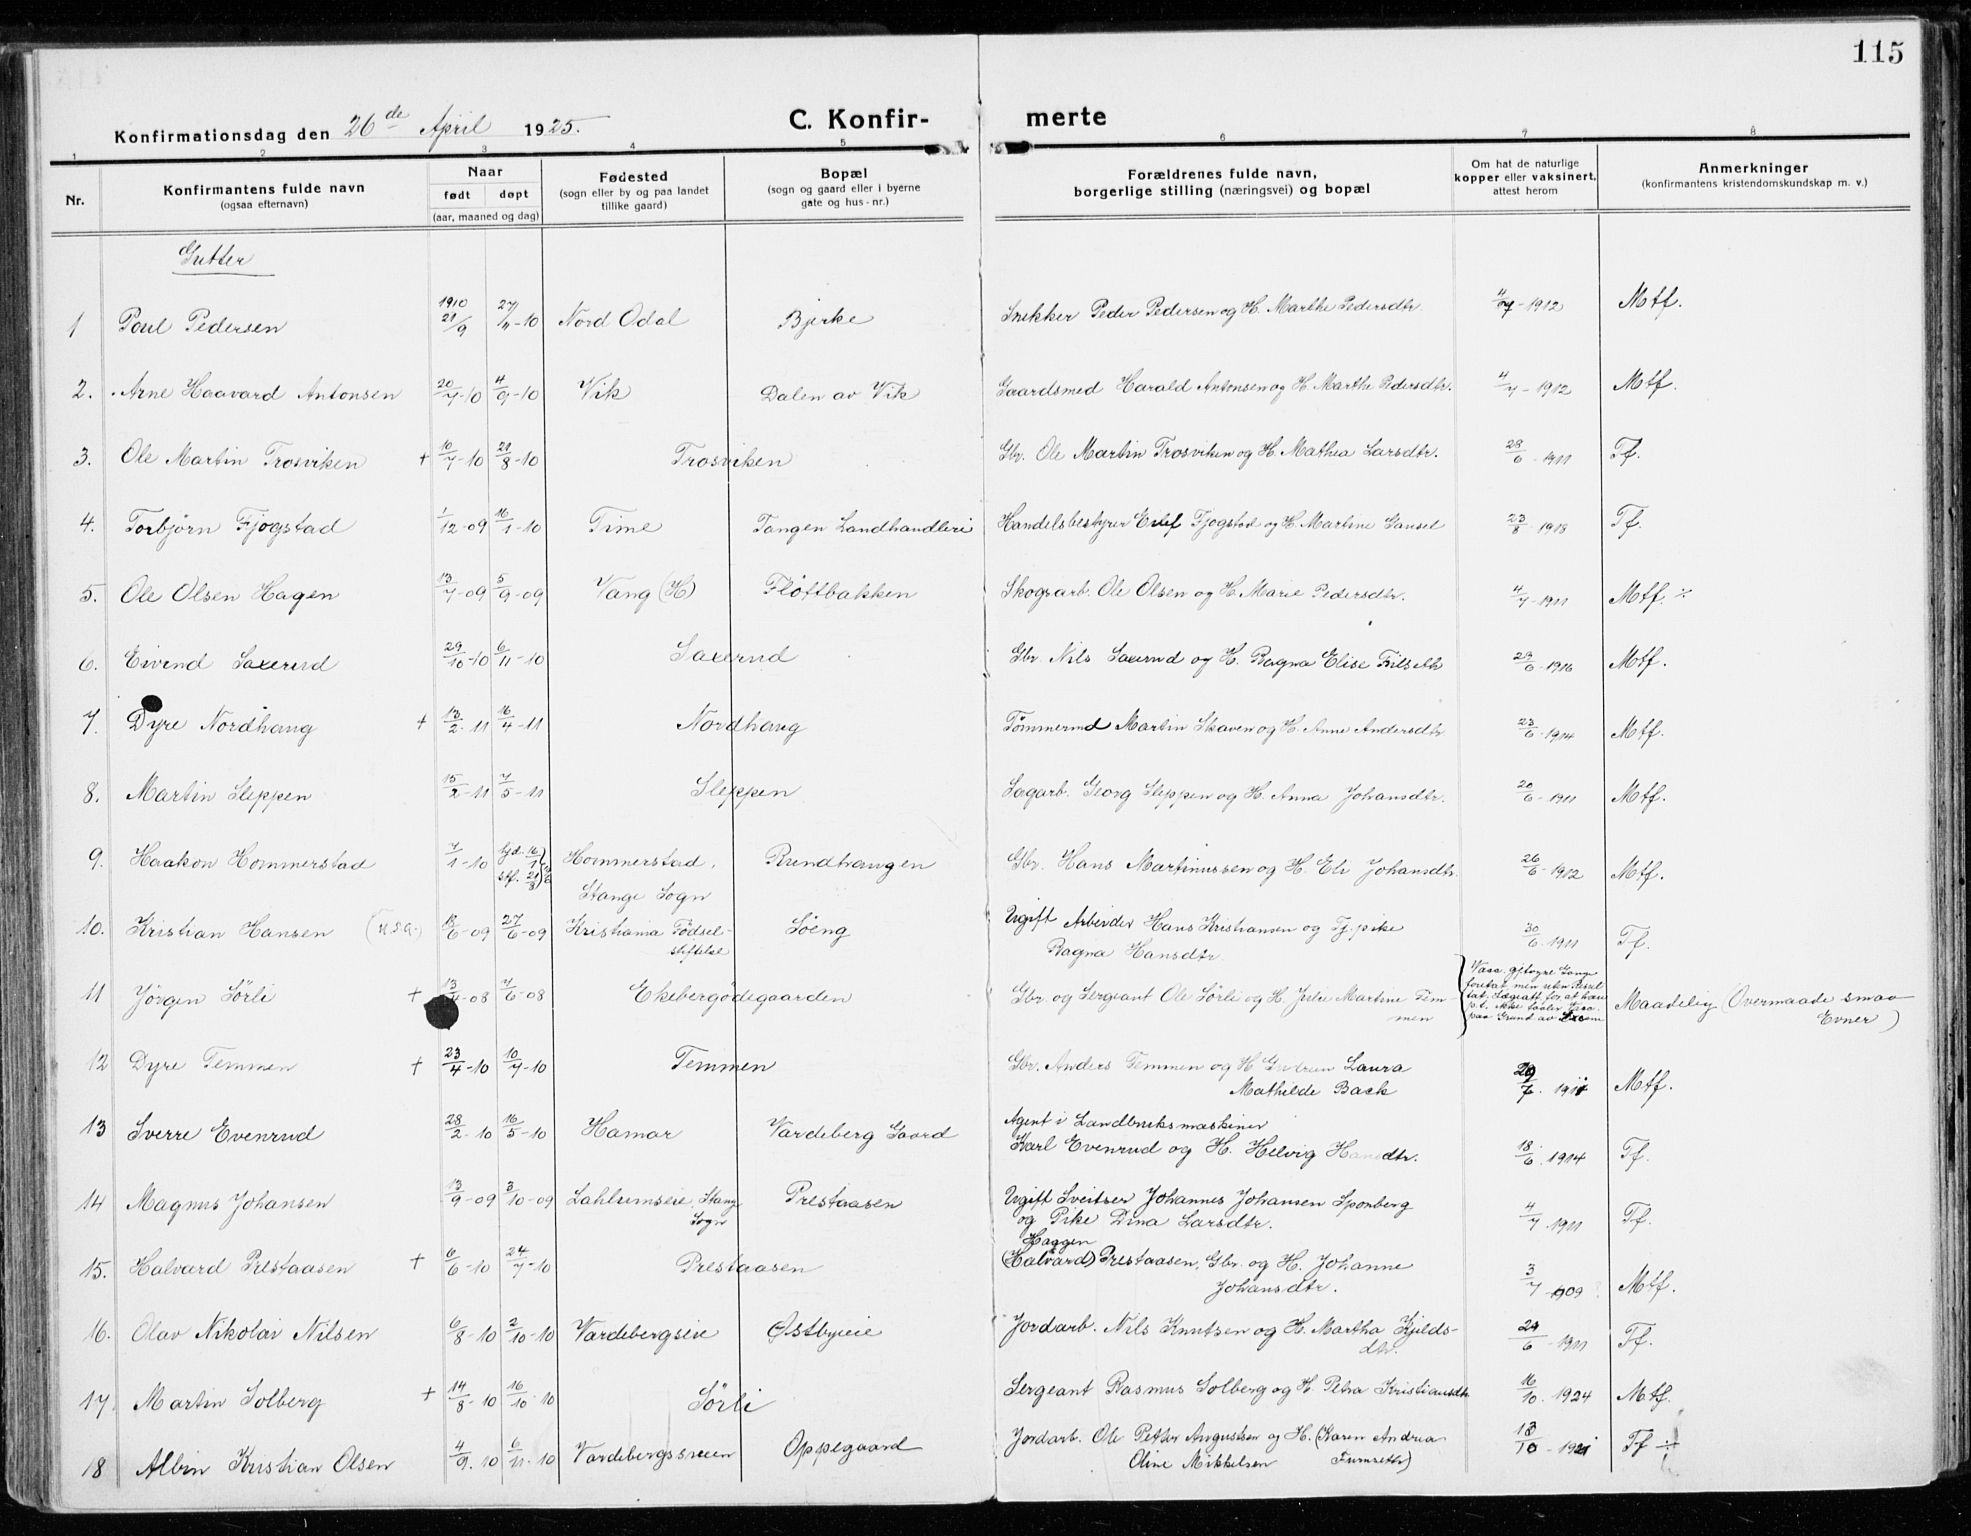 115
Konfirmationsdag den 26de April 1925. C. Konfir- merte
1 2 3 4 5 6 7 8
Nr. Konfirmantens fulde navn (ogsaa efternavn) Naar født døpt (aar, maaned og dag) Fødested (sogn eller by og paa landet tillike gaard) Bopæl (sogn og gaard eller i byerne gate og hus-nr.) Forældrenes fulde navn, borgerlige stilling (næringsvei) og bopæl Om hat de naturlige kopper eller vaksinert, attest herom Anmerkninger (konfirmantens kristendomskundskap m. v.)
Gutter
1 Poul Pedersen 1910 21/9 27/11-10 Nord Odal Bjerke Snekker Peder Pedersen og H. Marthe Pedersdtr. 4/7-1912 Mtf.
2. Arne Haavard Antonsen 20/7-10 4/9-10 Vik Dalen av Vik Gaardsmed Harald Antonsen og H. Marthe Pedersdtr. 4/7-1912 Mtf.
3. Ole Martin Trosviken + 10/7-10 21/8-10 Trosviken Gbr. Ole Martin Trosviken og H. Mathea Larsdtr. 28/6-1911 Tf.
4. Torbjörn Fjogstad 1/12-09 16/1-10 Time Tangen Landhandleri Handelsbestyrer Fjogstad og H. Martine Gausel 23/8 1918 Tf.
5. Ole Olsen Hagen 13/7-09 5/9-09 Vang (H) Fløttbakken Skogsarb. Ole Olsen og H. Marie Pedersdtr. 4/7-1911 Mtf. ÷
6. Eivend Saxerud 29/10-10 6/11-10 Saxerud Gbr. Nils Saxerud og H. Ragna Elise Filseth 29/6-1916 Mtf.
7. Dyre Nordhaug + 13/2-11 16/4-11 Nordhaug Tømmermd Martin Skaven og H. Anne Andersdtr 23/6-1914 Mtf.
8. Martin Sleppen 15/2-11 7/5-11 Sleppen Sagarb. Georg Sleppen og H. Anna Johansdtr. 20/6-1911 Mtf.
9. Haakon Hommerstad 7/1-10 hjd. 16/1 stf. 21/8 Hommerstad, Rundhaugen Gbr. Hans Martinussen og H. Eli Johansdtr. 26/6-1912 Mtf.
Stange Sogn
10. Kristian Hansen 13/6-09 27/6-09 Kristiania Fødsel- Söeng Ugift Arbeider Hans Kristiansen og Tj. pike 30/6-1911 Tf.
stiftelse Ragna Hansdtr.
11 Jörgen Sörli + 13/4-08 7/6-08 Ekebergödegaarden Gbr. og Sergeant Ole Sörli og H. Julie Martine Tem- Maadelig (Overmaade smaa
men Evner)
12 Dyre Temmen + 23/4-10 10/7-10 Temmen Gbr. Anders Temmen og H Gudrun Laura Mtf.
Mathilde Back
13 Sverre Evenrud 28/2-10 16/5-10 Hamar Vardeberg Gaard Agent i Landbruksmaskiner
Karl Evenrud og H. Helvig Hansdtr. 18/6-1914 Tf.
14 Magnus Johansen 13/9-09 3/10-09 Lahlumseie, Stang Prestaasen Ugift Sveitser Johannes Johansen Sponberg
Sogn og Pike Dina Larsdtr. 4/7 1911 Tf.
15. Halvard Prestaasen + 6/6-10 24/7-10 Prestaasen Haagen (Halvard) Prestaasen, Gbr. og H. Johanne
Johansdtr. 3/7-1909 Mtf.
16. Olav Nikolai Nilsen 6/8-10 2/10-10 Vardebergseie Østbyeie Jordarb. Nils Knutsen og H. Martha Kjelds-
dtr. 24/6-1911 Tf.
17. Martin Solberg + 14/8-10 16/10-10 Sörli Sergeant Rasmus Solberg og H. Petra Kristiansdtr 16/10-1924 Mtf.
18 Albin Kristian Olsen 4/9-10 6/11-10 Vardebergssveen Oppegaard Jordarb. Ole Petter Augustsen og H. (Karen Andrea
Oline Mikkelsen Furuseth) 13/10-1921 Tf ÷